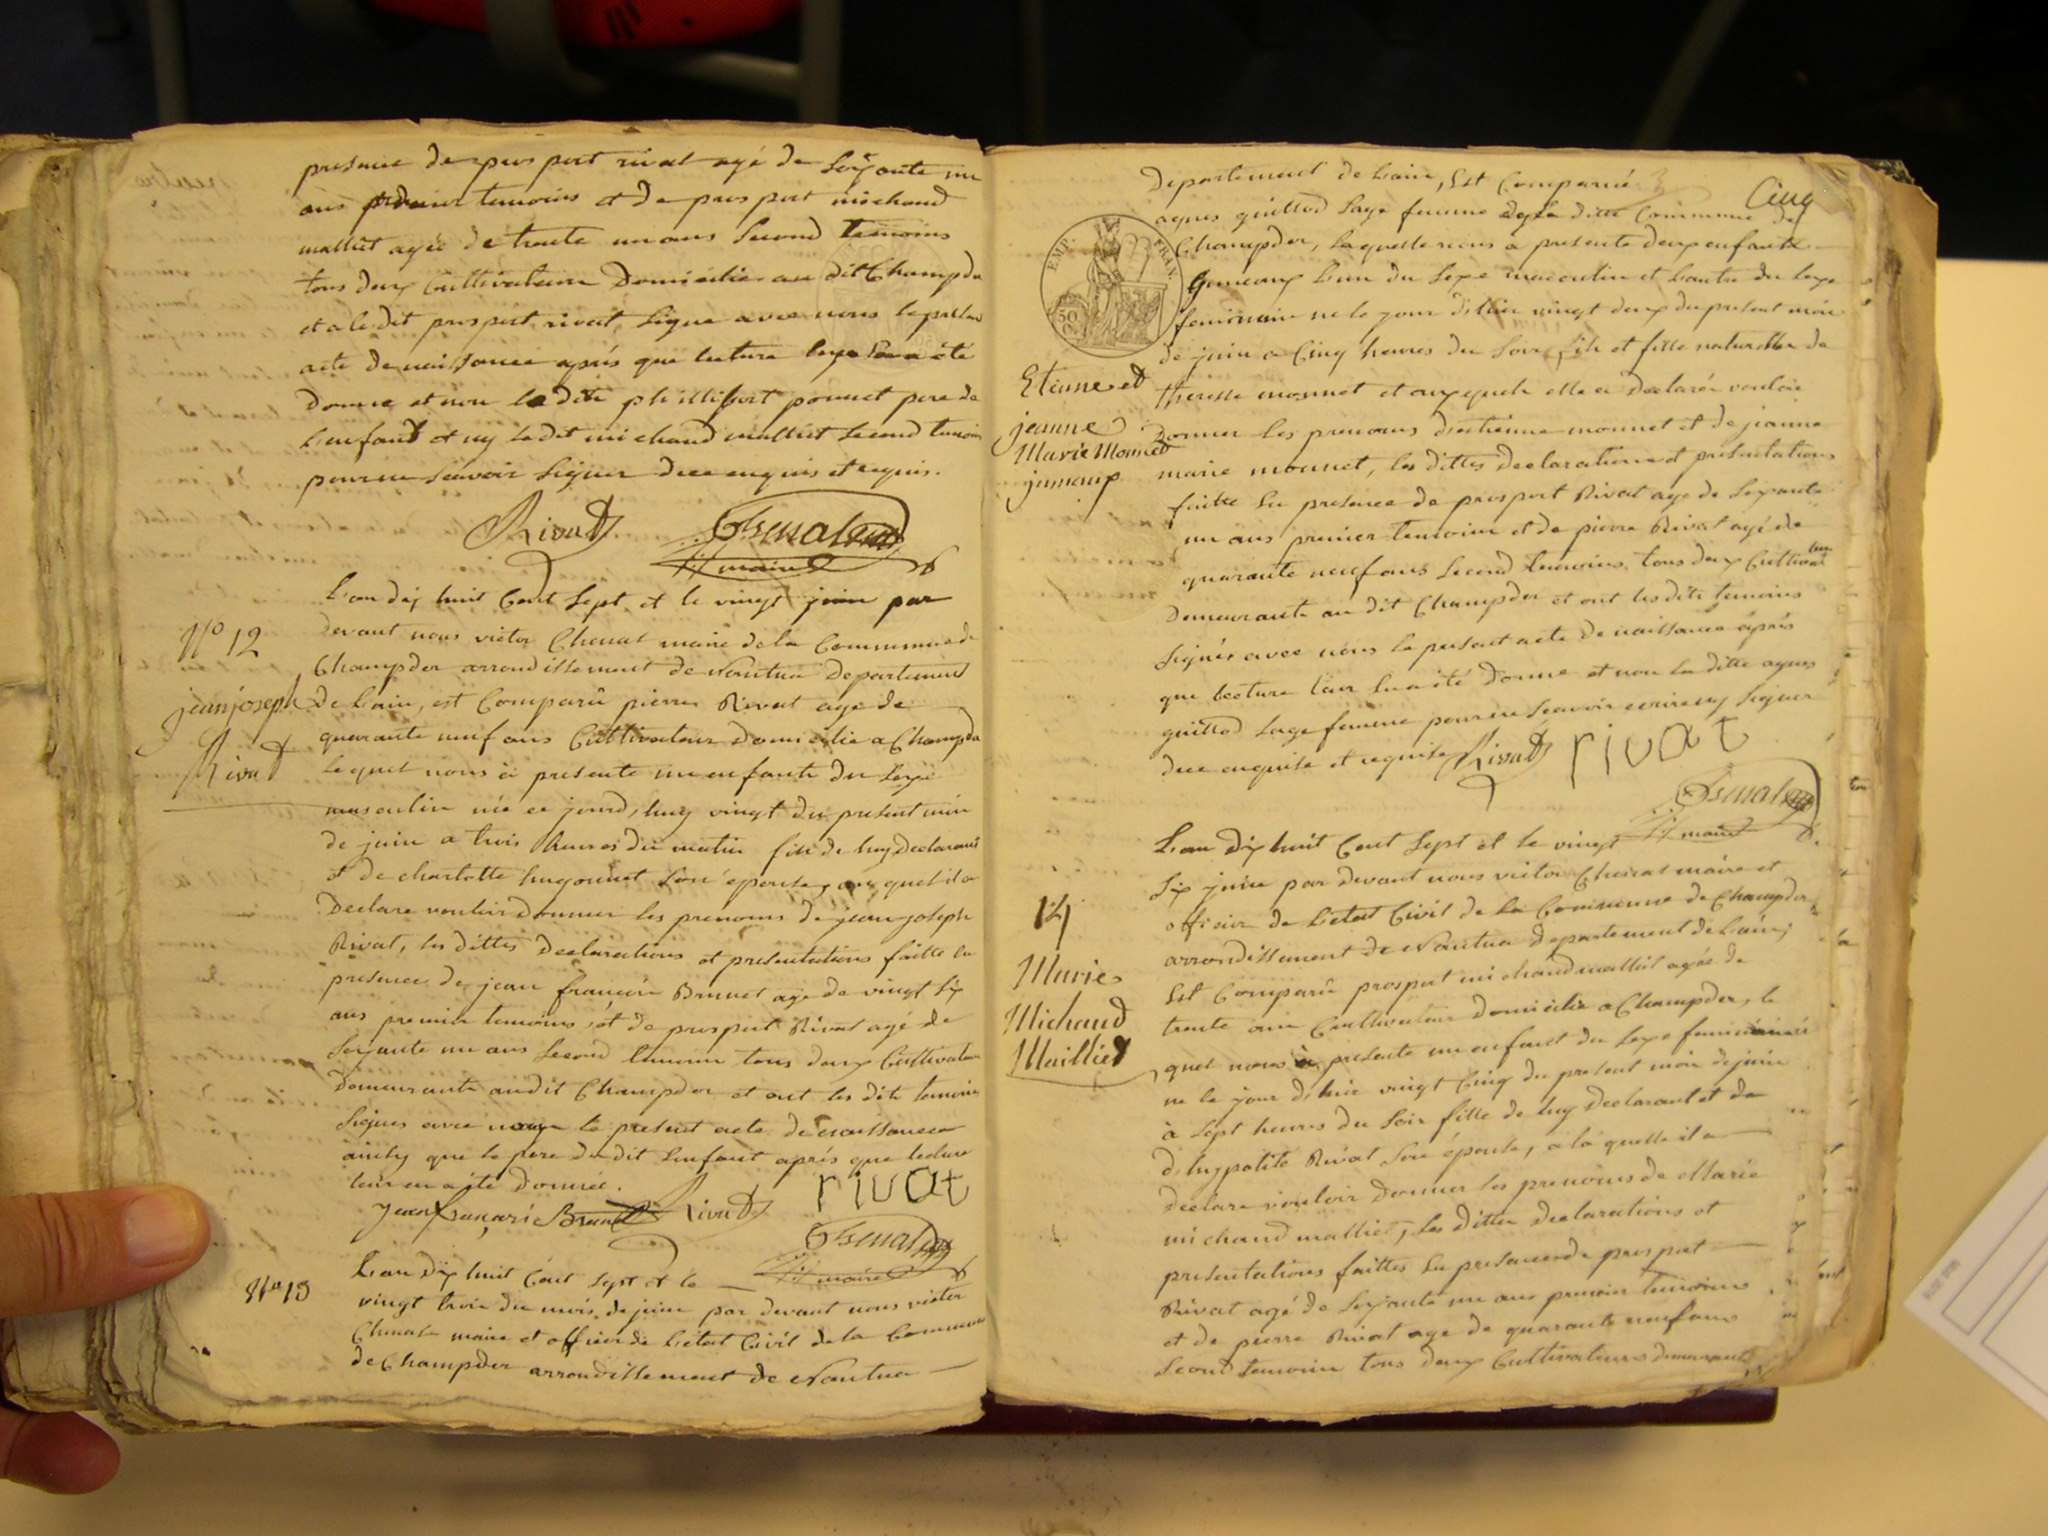 presence de prospert rivat agé de soixante un
ans premier temoins et de prospert michaud
malliet agée de trente un ans second temoins
tous deux Cultivateurs Domiciliés au dit Champdor
et a le dit prospert rivat signé avec nous le présent
acte de naissance aprés que lecture luy en a été
Donné et non le dit phillibert ponnet pere de
L'enfant et ny le dit michaud malliet second temoin
pour ne scavoir signer dece enquis et requis.
Rivat Chenat
maire
L'an dix huit Cent sept et le vingt juin par
N° 12
devant nous victor Chenat maire de la Commune de
Champdor arrondissement de Nantua Departement
jean joseph
de L'ain, est Comparû pierre Rivat age de
quarante neuf ans Cultivateur domicilié a Champdor
Rivat
lequel nous à presenté un enfant du sexe
masculin née ce jourd'huy vingt du present mois
de juin a trois heures du matin fils de luy Declarant
et de charlotte hugonnet son épouse, au quel il a
Declaré vouloir donner les prenoms de jean joseph
Rivat, les dittes declarations et presentations faitte en
presence de jean françois Brunet age de vingt six
ans premier temoins, et de prospert Rivat agé de
soixante un ans second temoin tous deux Cultivateurs
Demeurants audit Champdor et ont les dits temoins
signés avec nous le present acte de naissance
ainsy que le pere du dit enfant aprés que lecture
leur en a été donnée.
jean françois Brunet Rivat rivat
Chenat
maire
N° 13
L'an dix huit Cent sept et le
vingt trois du mois de juin par devant nous victor
Chenat maire et officier de L'état Civil de la Commune
de Champdor arrondissement de Nantua
Cinq
departement de L'ain, Est Comparué
agnes guillod sage femme de la ditte Commune de
Champdor, laquelle nous a presenté deux enfants
EMP. FRAN.
50
C.
gemeaux L'un du sexe masculin et L'autre du sexe
feminin né le jour d'hier vingt deux du present mois
de juin a Cinq heures du soir, fils et fille naturelle de
Etienne et
therese monnet et auxquels elle a declaré vouloir
jeanne
donner les prenoms d'estienne monnet et de jeanne
Marie Monnet
marie monnet, les dittes declarations et presentations
jumeaux
faitte en presence de prospert Rivat age de soixante
un ans premier temoin et de pierre Rivat agé de
quarante neuf ans second temoins tous deux Cultivateurs
demeurants au dit Champdor et ont les dits temoins
signés avec nous le present acte de naissance aprés
que lecture leur en a été donné et non la ditte agnes
guillod sage femme pour ne scavoir ecrire ny signer
dece enquise et requise Rivat rivat
Chenat
maire
L'an dix huit Cent sept et le vingt
six juin par devant nous victor Chenat maire et
14
officier de L'état Civil de la Commune de Champdor
arrondissement de Nantua departement de L'ain,
Marie
Est Comparû prospert michaud malliet agée de
Michaud
trente ans Cultivateur domicilié a Champdor, le
Malliet
quel nous à presenté un enfant du sexe feminin
né le jour d'hier vingt Cinq du present mois de juin
à sept heures du soir fille de luy declarant et de
d'hypolite Rivat son épouse, à la quelle il a
declaré vouloir donner les prenoms de Marie
michaud malliet, les dittes declarations et
presentations faittes en presence de prospert
Rivat agé de soixante un ans premier temoins
et de pierre Rivat age de quarante neuf ans
second temoin tous deux Cultivateurs demeurants